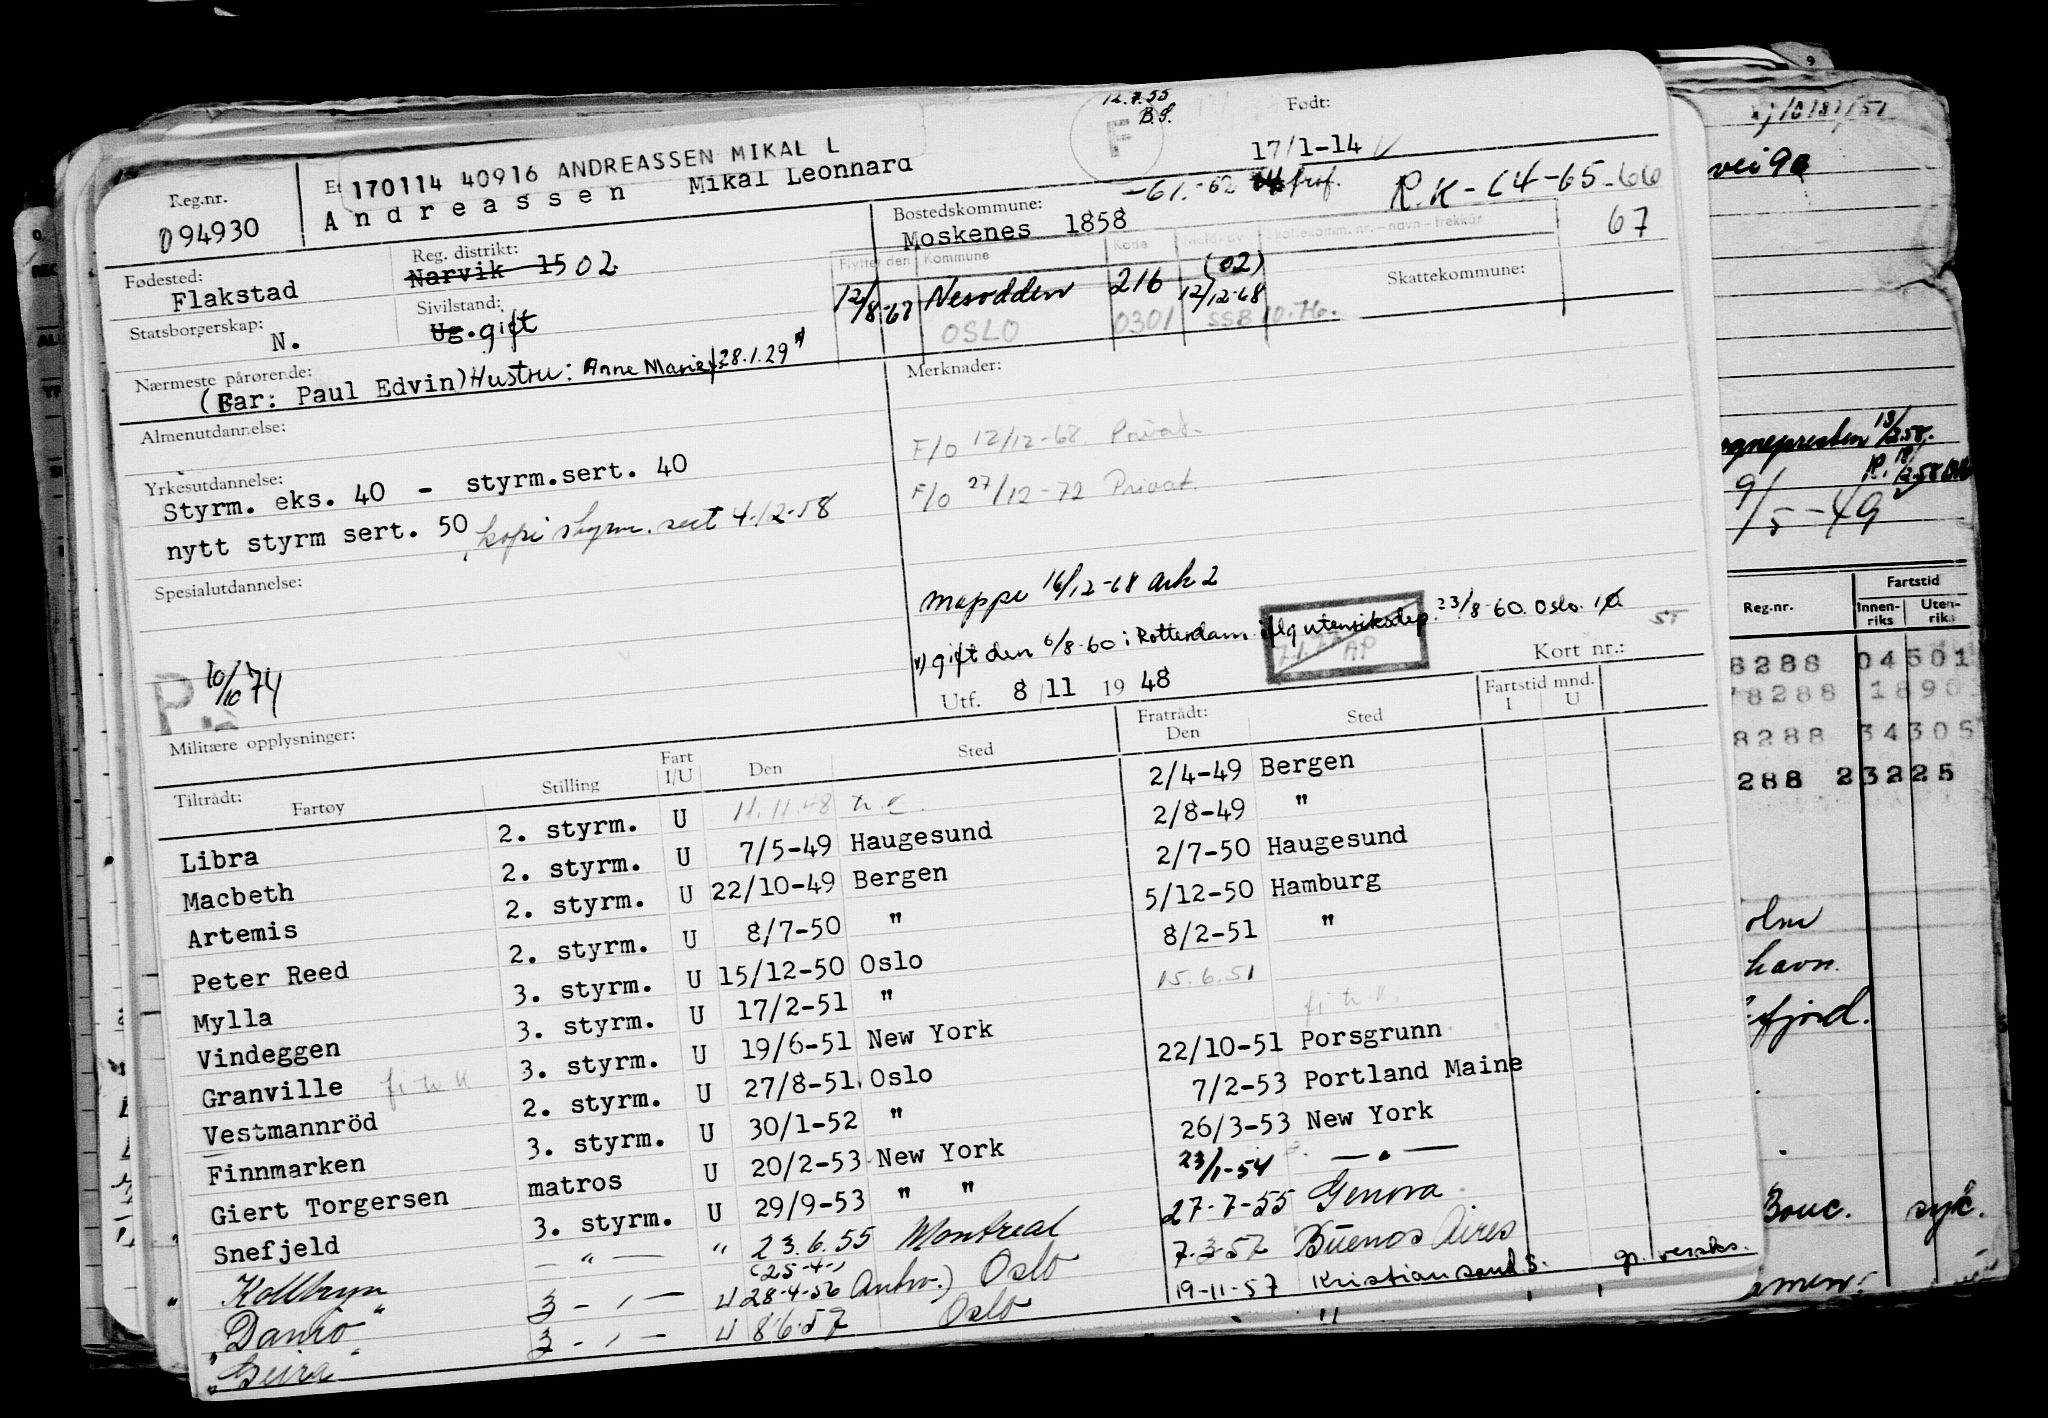 12.7.55
B.S.
F
Født:
17/1-14
Reg.nr.
094930
170114 40916 ANDREASSEN MIKAL L
Andreassen Mikal Leonnard
-61.-62 frof.
R.K-64-65-66
67
Fødested:
Flakstad
Reg. distrikt:
Narvik 1502
Bostedskommune:
Moskenes 1858
Statsborgerskap:
N.
Sivilstand:
Ug. gift
Flyttet den Kommune Kode Skattekomm. nr. - navn - trekkår
Skattekommune:
12/8-67 Nesodden 216 (02) 12/12-68
OSLO 0301 SSB 10.76.
Nærmeste pårørende:
(Far: Paul Edvin) Hustru: Anne Marie f. 28.1.29 *)
Merknader:
Almenutdannelse:
F/o 12/12-68. Privat.
Yrkesutdannelse:
Styrm. eks. 40 - styrm.sert. 40
F/o 27/12-72 Privat.
nytt styrm sert. 50, kopi styrm. sert 4-12-58
Spesialutdannelse:
mappe 16/12-68 ark 2
*) gift den 6/8-60 i Rotterdam iflg utenriksdep. 23/8-60. Oslo.
AP
P. 10/10 74
Utf. 8/11 1948
Kort nr.:
Militære opplysninger:
Fratrådt:
Den Sted
Fartstid mnd.
I U
Tiltrådt: Fartøy Stilling Fart I/U Den Sted
Libra 2. styrm. U 11.11.48 2/4-49 Bergen
Macbeth 2. styrm. U 7/5-49 Haugesund 2/8-49 "
Artemis 2. styrm. U 22/10-49 Bergen 2/7-50 Haugesund
Peter Reed 2. styrm. U 8/7-50 " 5/12-50 Hamburg
Mylla 3. styrm. U 15/12-50 Oslo 8/2-51 "
Vindeggen 3. styrm. U 17/2-51 " 15.6.51
Granville 3. styrm. U 19/6-51 New York
Vestmannröd 2. styrm. U 27/8-51 Oslo 22/10-51 Porsgrunn
Finnmarken 3. styrm. U 30/1-52 " 7/2-53 Portland Maine
Giert Torgersen matros U 20/2-53 New York 26/3-53 New York
Snefjeld 3. styrm. U 29/9-53 " " 23/1-54 — " —
" Kollbryn — " — " 23.6.55 Montreal 27-7-55 Genova
(25-4-)
"Danio" 3 - " - U 28-4-56 Antw.) Oslo 7-3-57 Buenos Aires
"Geira" 3 - " - U 8.6.57 Oslo 19-11-57 Kristiansand S.
9
vei 9a
ognepresten 13/2.58.
9/5-49
Reg.nr. Fartstid
Innen-riks Uten-riks
8288 04501
78288 1890
8288 34305
288 23225
olm
havn.
fjord.